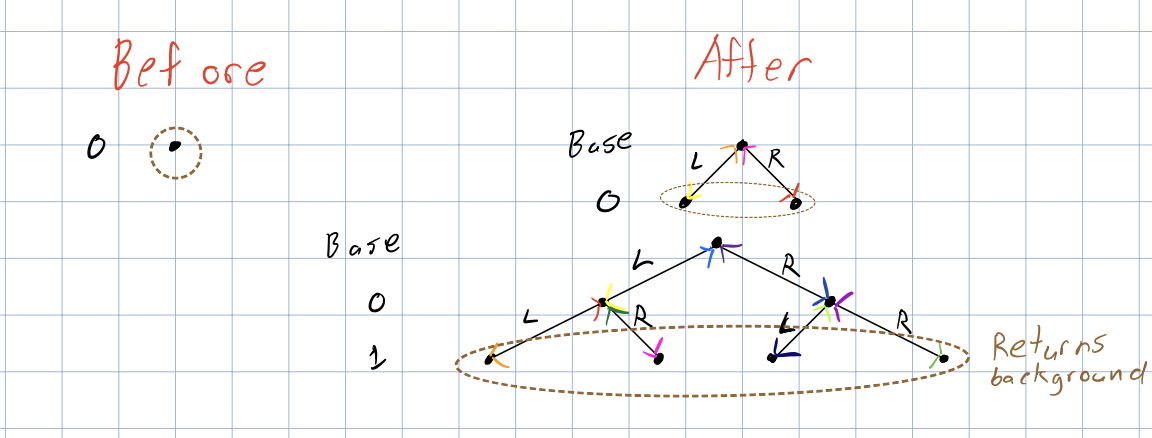 Before
After
0
Base
L
R
0
Base
L
R
0
L
R
L
R
1
Returns
background